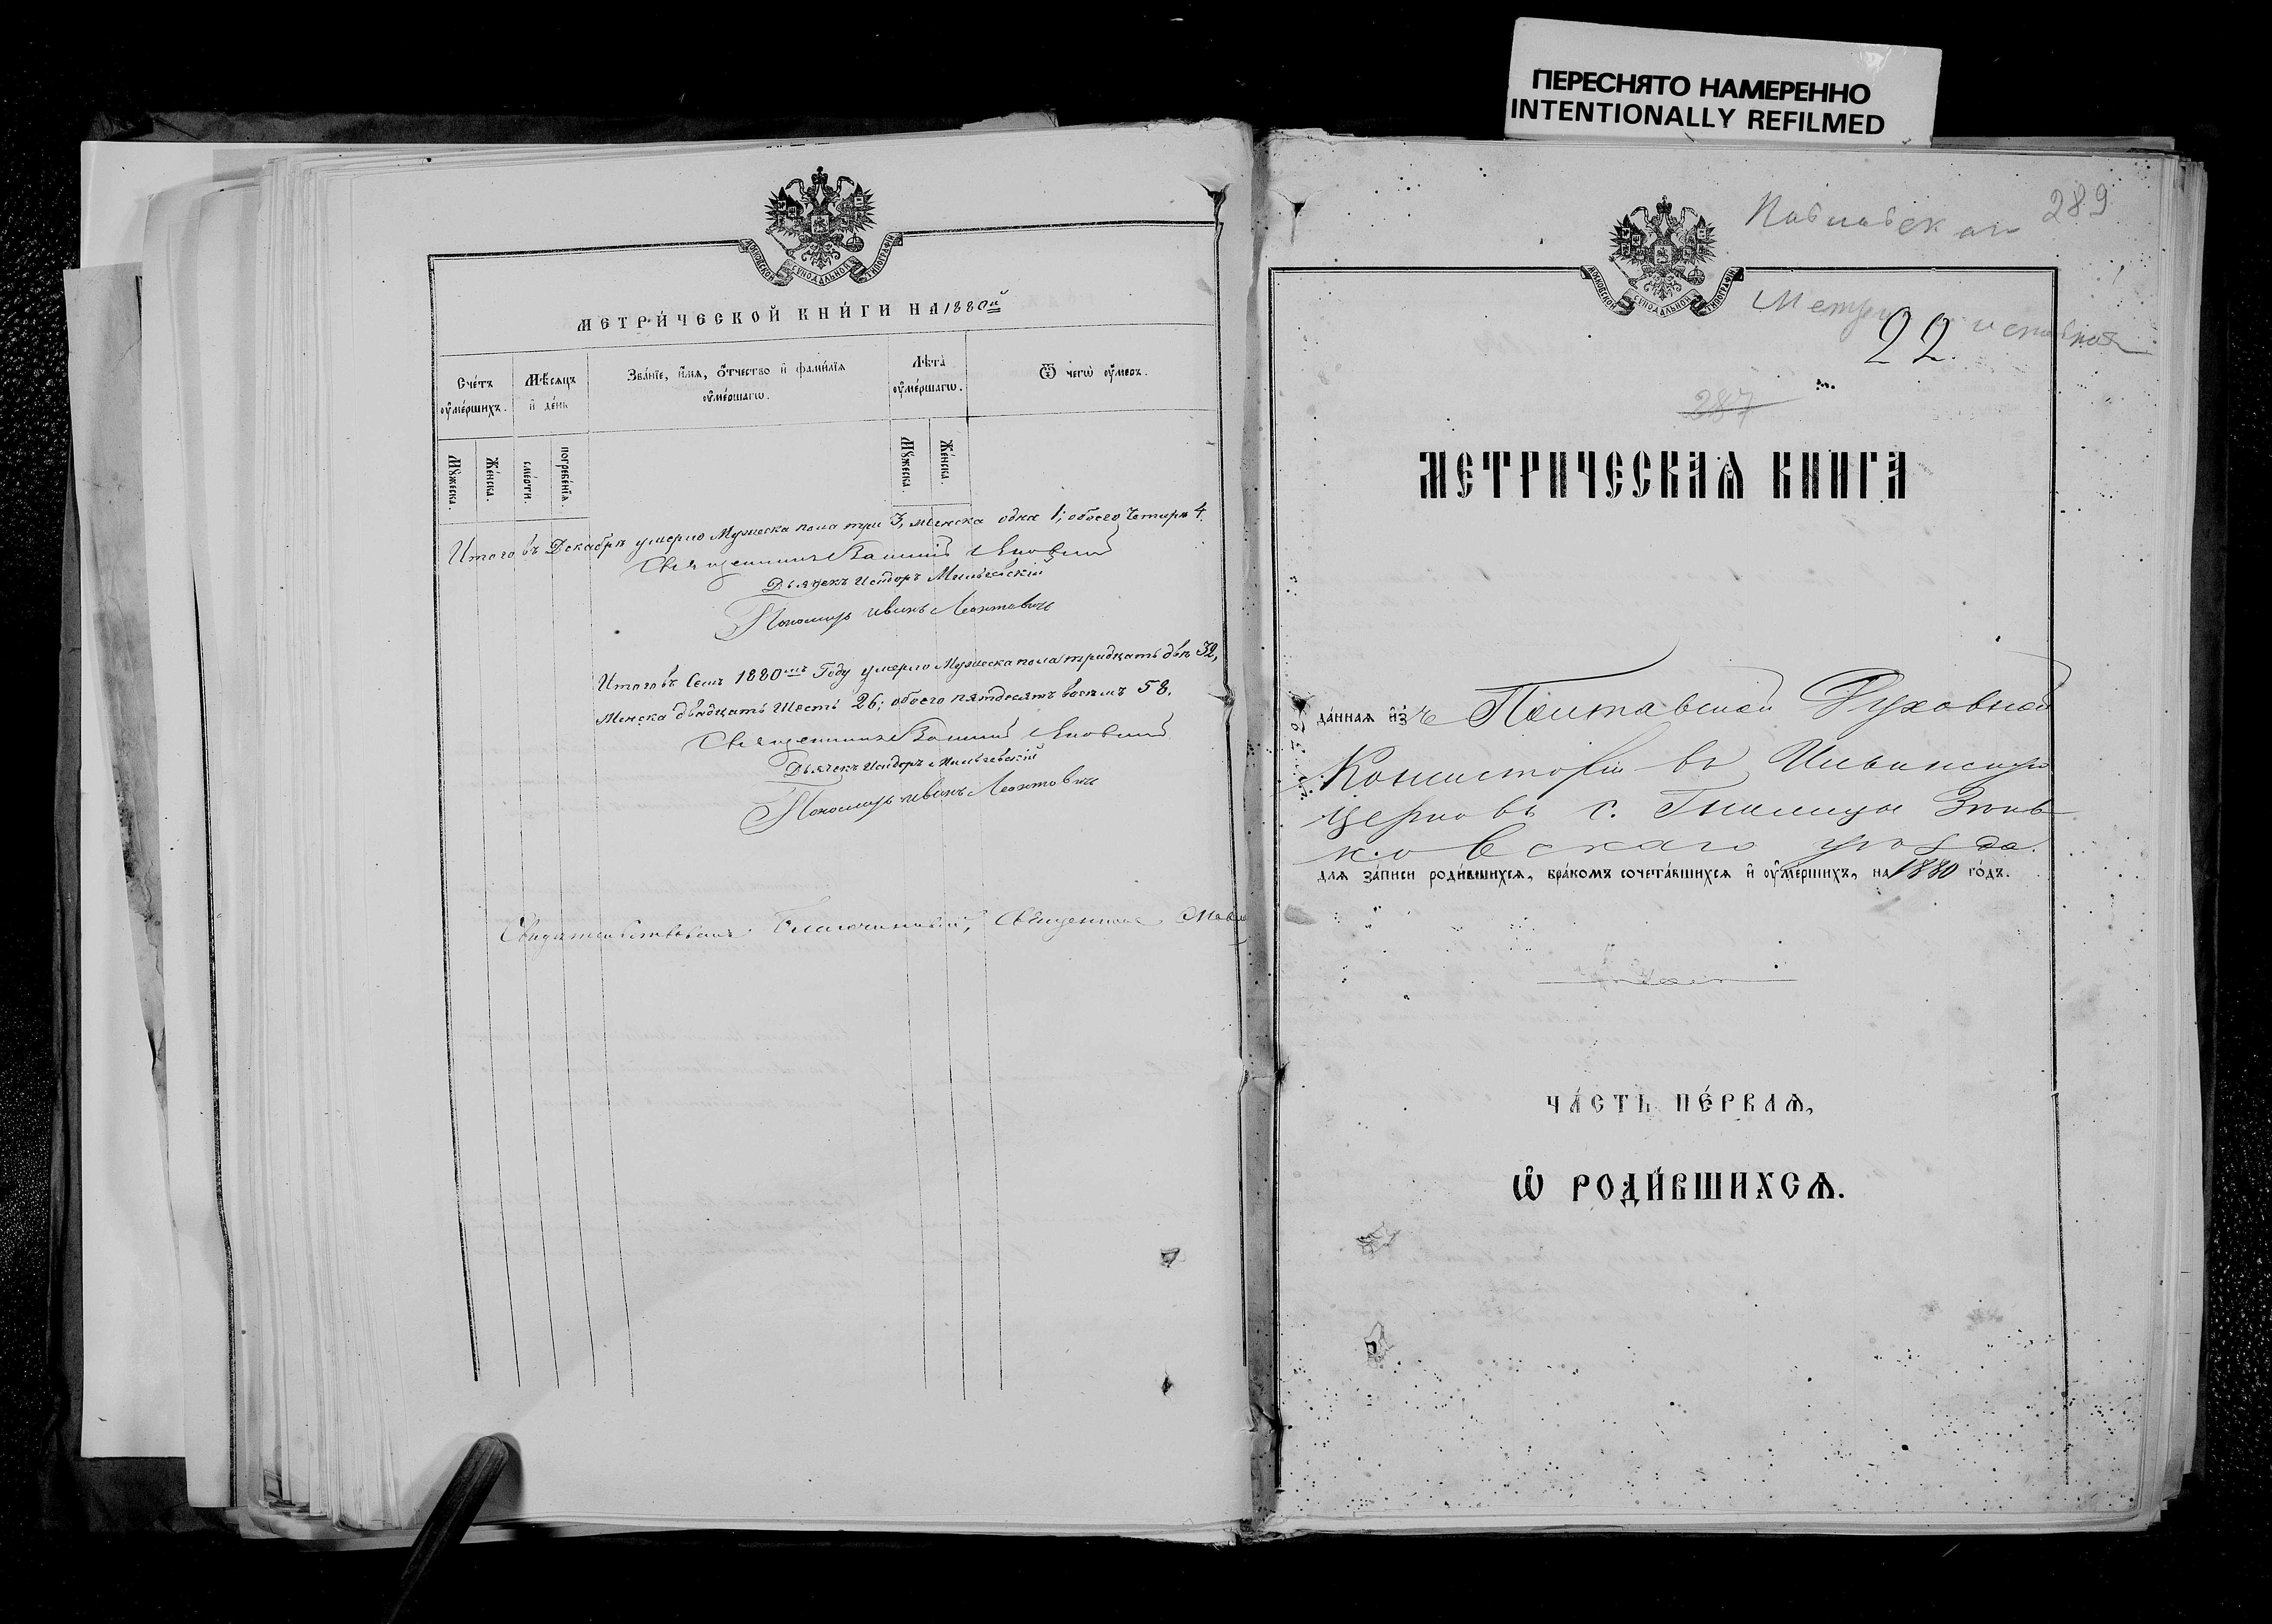 ПЕРЕСНЯТО НАМЕРЕННО
INTENTIONALLY REFILMED
МОСКОВСКОЙ СѴНОДАЛЬНОЙ ТИПОГРАФІИ
МЕТРИ́ЧЕСКОЙ КНИ́ГИ НА 1880й
Сче́тъ оу҆ме́ршихъ.
Мѣ́сяцъ и҆ де́нь
Зва́нїе, и҆́мя, ѻ҆́тчество и҆ фами́лїя оу҆ме́ршагѡ.
Лѣта̀ оу҆ме́ршагѡ.
Ѿ чегѡ̀ оу҆́меръ.
Мꙋ́жеска.
Же́нска.
сме́рти.
погребе́нїя.
Мꙋ́жеска.
Же́нска.
Итого въ Декабрѣ умерло Мужеска пола три 3, женска одна 1; обоего Четыре 4.
Священникъ Яновскій
Дьячекъ Исидоръ
Пономарь Иванъ Леонтовичъ
Итого въ Семъ 1880мъ Году умерло Мужеска пола тридцать двѣ 32,
Женска двадцать Шесть 26; обоего пятдесятъ восемъ 58.
Священникъ Яновскій
Дьячекъ Исидоръ
Пономарь Иванъ Леонтовичъ
Свидѣтельствовалъ Благочинный, Священникъ
289
МОСКОВСКОЙ СѴНОДАЛЬНОЙ ТИПОГРАФІИ
22.
287
МЕТРИЧЕСКАѦ КНИГА
да́нная и҆зъ Полтавской Духовной
Консисторіи въ Ильинскую
церковь с. Гнилицы Зѣнь
ковскаго уѣзда.
для за́писи роди́вшихся, бра́комъ сочета́вшихся и҆ оу҆ме́ршихъ, на 1880 го́дъ.
ЧА́СТЬ ПЕ́РВАѦ,
Ѡ҆ РОДИ́ВШИХСѦ.